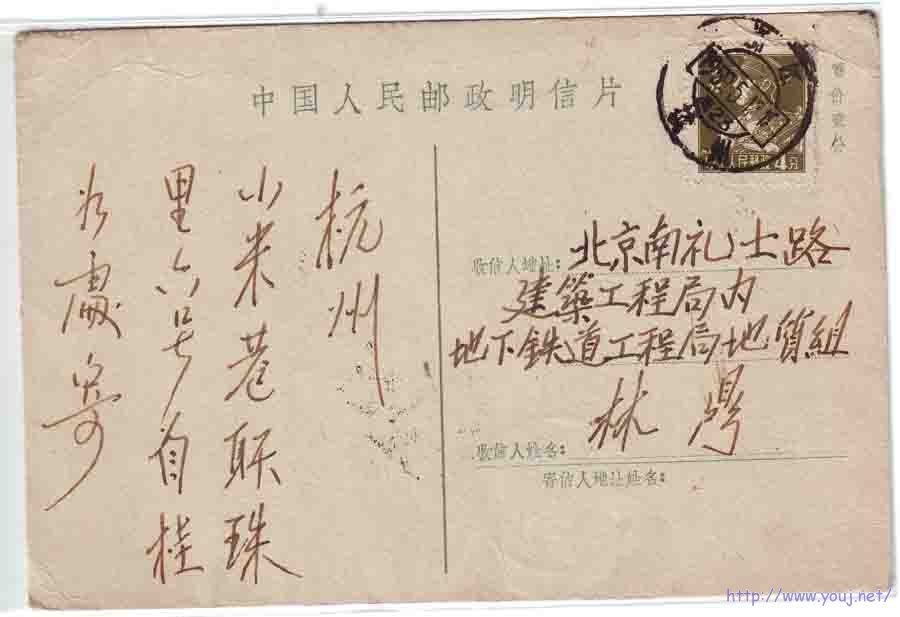 中国人民邮政明信片
售价壹分
中国人民邮政4分
收信人地址:北京南礼士路
建築工程局内
地下鉄道工程局地質組
收信人姓名:林
寄信人地址姓名:
杭州
小米巷联珠
里六号自桂
寄
http://www.youj.net/